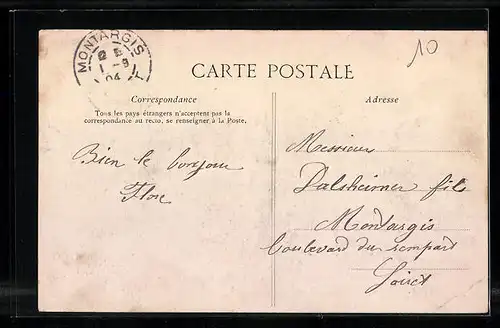 MONTARGIS
1 - 9
04
10
CARTE POSTALE
Correspondance
Tous les pays étrangers n'acceptent pas la
correspondance au recto, se renseigner à la Poste.
Bien le bonjour
Flore
Adresse
Messieurs
Dalsheimer fils
Montargis
boulevard du rempart
Loiret